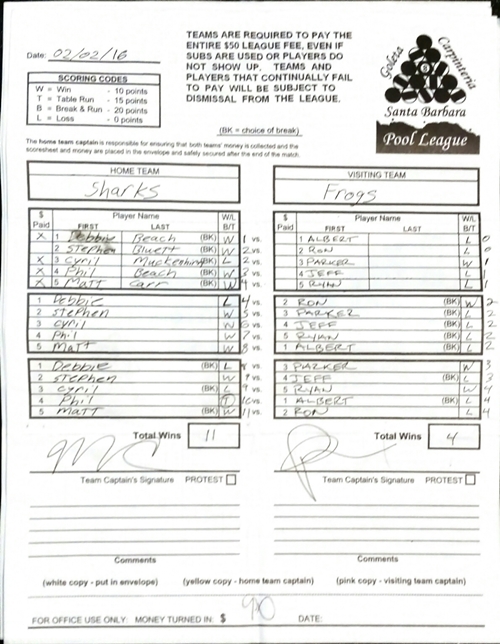 Date: 02/02/16
TEAMS ARE REQUIRED TO PAY THE
ENTIRE $50 LEAGUE FEE, EVEN IF
SUBS ARE USED OR PLAYERS DO
NOT SHOW UP. TEAMS AND
PLAYERS THAT CONTINUALLY FAIL
TO PAY WILL BE SUBJECT TO
DISMISSAL FROM THE LEAGUE.
Goleta Carpinteria
Santa Barbara
Pool League
SCORING CODES
W = Win - 10 points
T = Table Run - 15 points
B = Break & Run - 20 points
L = Loss - 0 points
(BK = choice of break)
The home team captain is responsible for ensuring that both teams' money is collected and the
scoresheet and money are placed in the envelope and safely secured after the end of the match.
HOME TEAM
Sharks
VISITING TEAM
Frogs
$ Paid Player Name FIRST LAST W/L B/T
$ Paid Player Name FIRST LAST W/L B/T
X 1 Debbie Beach (BK) W 1 vs. 1 ALBERT L 0
2 Stephen Bluett (BK) W 2 vs. 2 RON L 0
X 3 Cyril (BK) L 2 vs. 3 PARKER W 1
X 4 Phil Beach (BK) W 3 vs. 4 JEFF L 1
X 5 Matt Carr (BK) W 4 vs. 5 RYAN L 1
1 Debbie L 4 vs. 2 RON (BK) W 2
2 Stephen W 5 vs. 3 PARKER (BK) L 2
3 Cyril W 6 vs. 4 JEFF (BK) L 2
4 Phil W 7 vs. 5 RYAN (BK) L 2
5 Matt W 8 vs. 1 ALBERT (BK) L 2
1 Debbie (BK) L 8 vs. 3 PARKER W 3
2 Stephen W 9 vs. 4 JEFF (BK) L 3
3 Cyril (BK) L 9 vs. 5 RYAN W 4
4 Phil T 10 vs. 1 ALBERT (BK) L 4
5 Matt (BK) W 11 vs. 2 RON L 4
Total Wins 11
Total Wins 4
Team Captain's Signature PROTEST
Team Captain's Signature PROTEST
Comments
Comments
(white copy - put in envelope) (yellow copy - home team captain) (pink copy - visiting team captain)
FOR OFFICE USE ONLY: MONEY TURNED IN: $ 90 DATE: